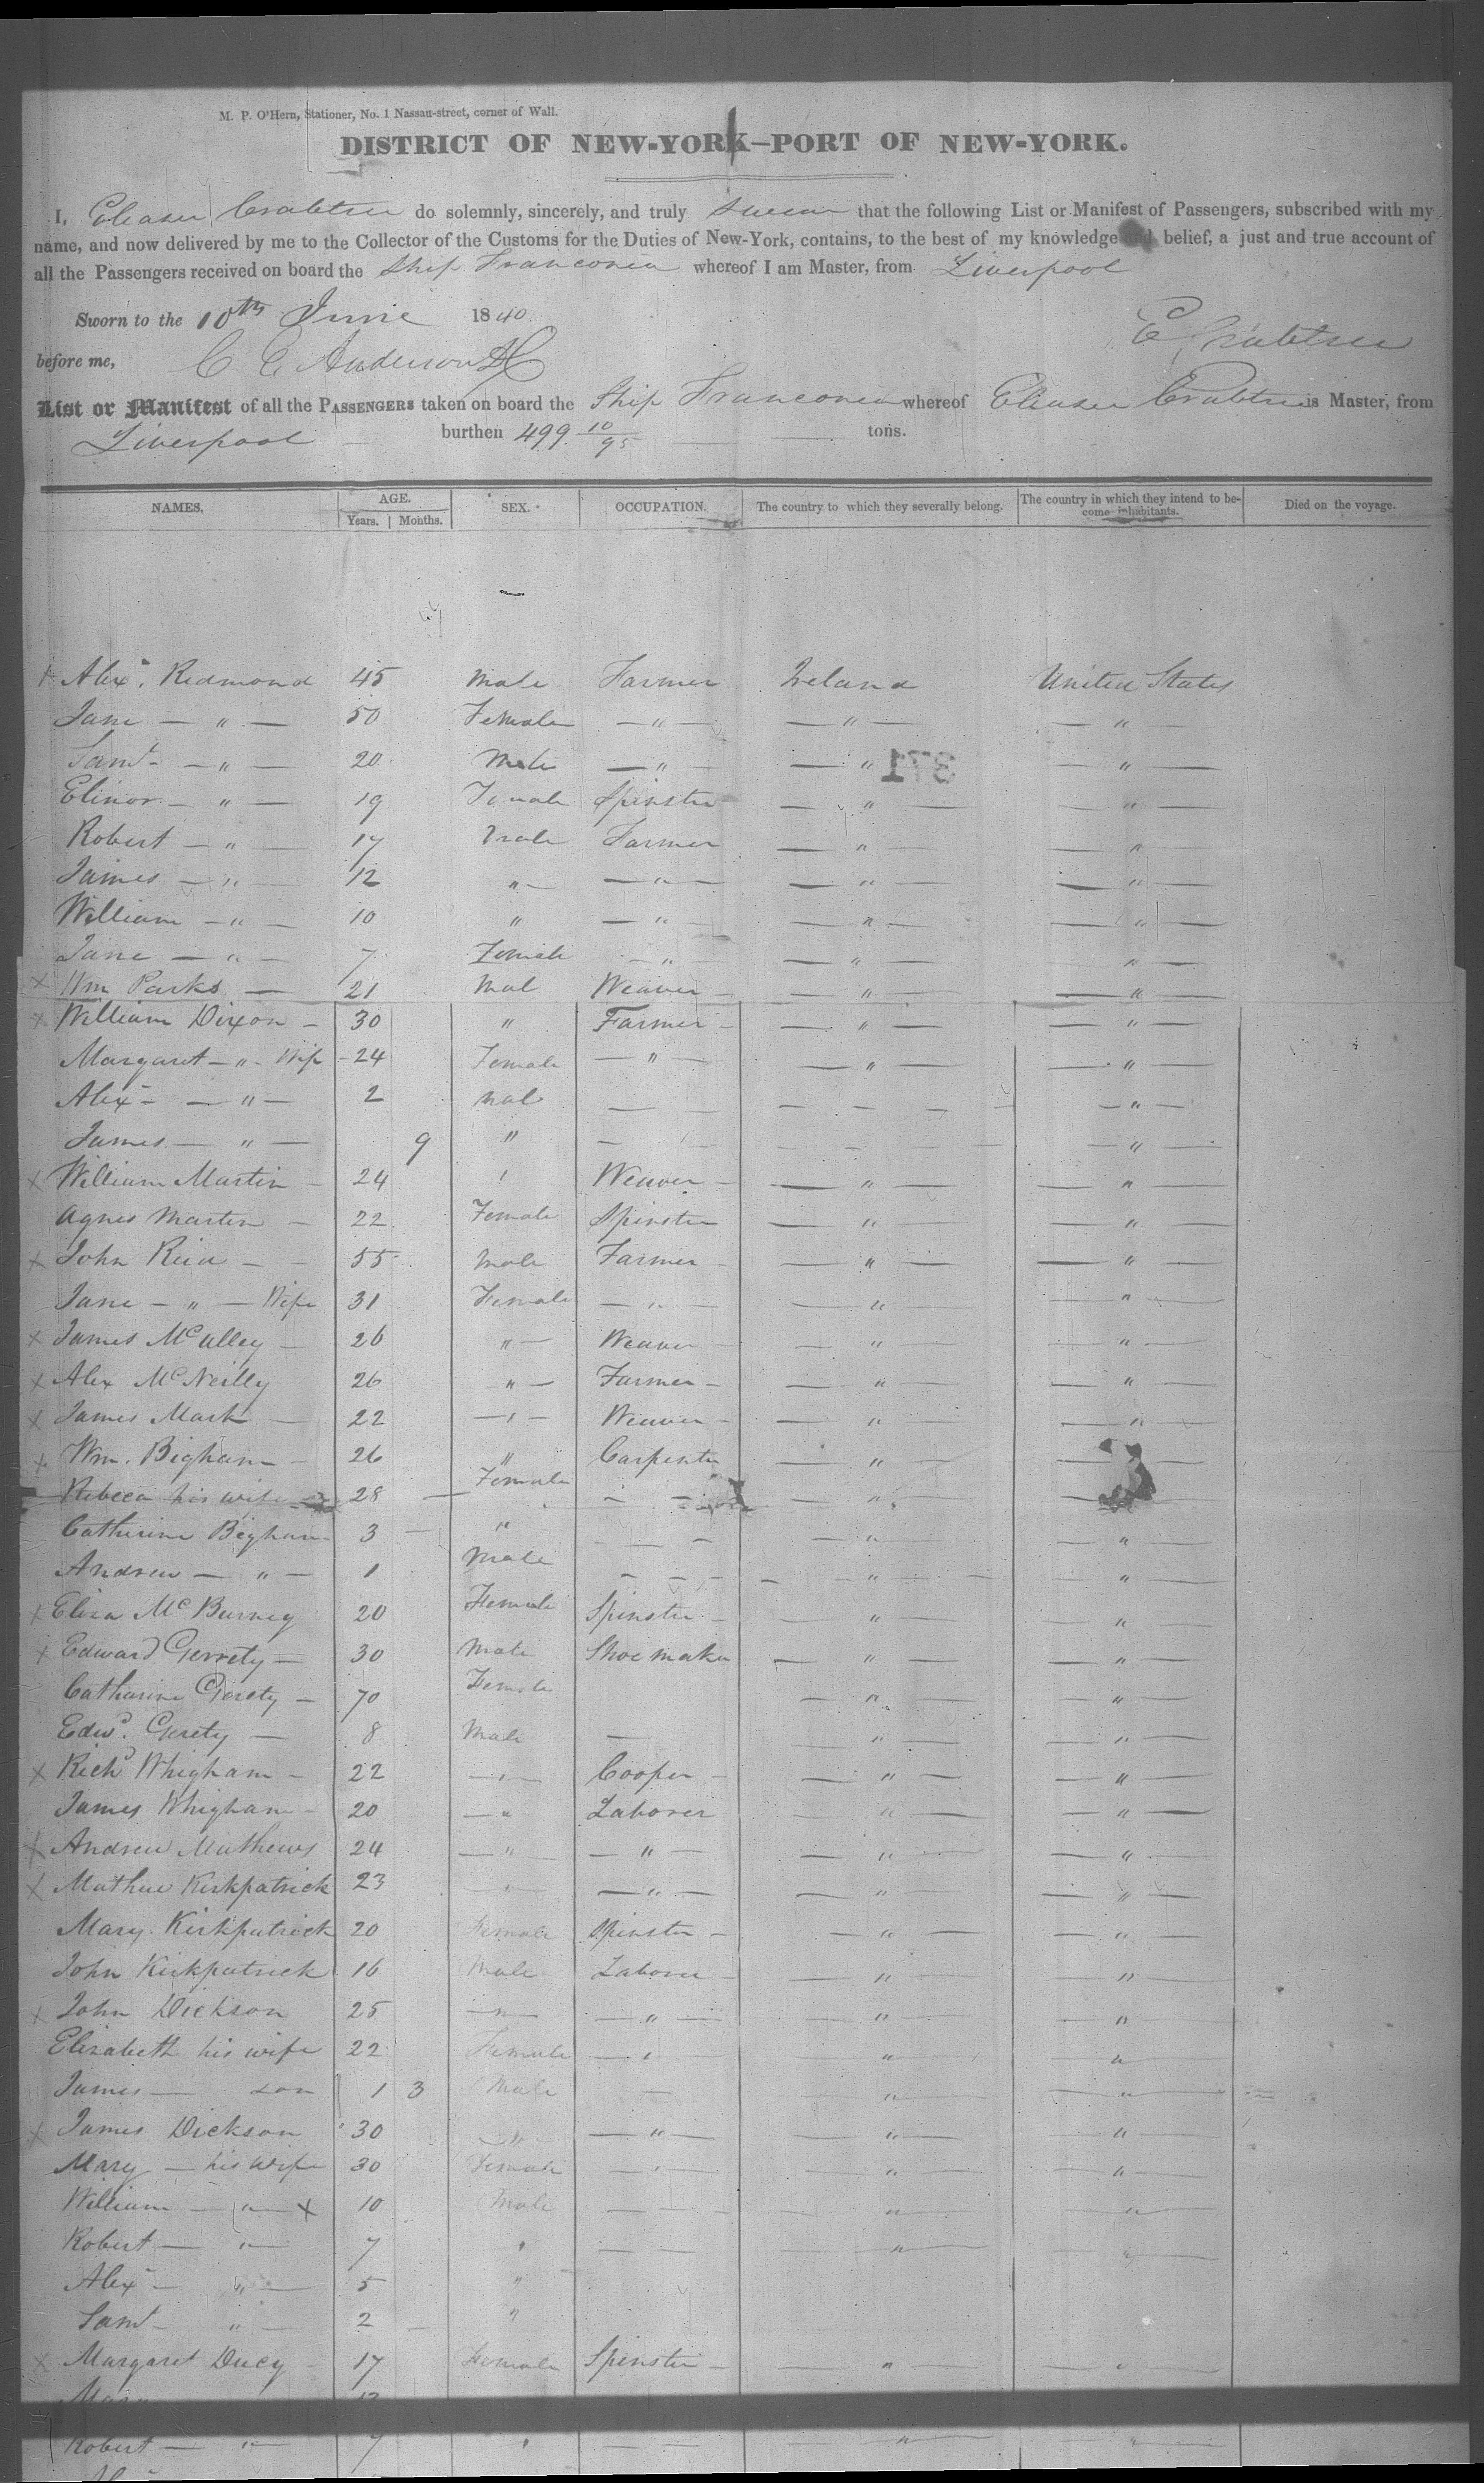 M. P. O'Hern, Stationer, No. 1 Nassau-street, corner of Wall.
DISTRICT OF NEW-YORK—PORT OF NEW-YORK.
I, Eleaser Crabtree do solemnly, sincerely, and truly swear that the following List or Manifest of Passengers, subscribed with my
name, and now delivered by me to the Collector of the Customs for the Duties of New-York, contains, to the best of my knowledge and belief, a just and true account of
all the Passengers received on board the Ship Franconia whereof I am Master, from Liverpool
Sworn to the 10th June 1840
E Crabtree
before me, C C Anderson
List or Manifest of all the PASSENGERS taken on board the Ship Franconia whereof Eleaser Crabtree is Master, from
Liverpool burthen 499 10/95 tons.
NAMES. AGE. Years. Months. SEX. OCCUPATION. The country to which they severally belong. The country in which they intend to become inhabitants. Died on the voyage.
Alexr. Redmond 45 Male Farmer Ireland United States
Jane — " — 50 Female — " — — " — — " —
Saml — " — 20 Male — " — — " — — " —
371
Elinor — " — 19 Female Spinster — " — — " —
Robert — " — 17 Male Farmer — " — — " —
James — " — 12 " — — " — — " — — " —
William — " — 10 " — " — — " — — " —
Jane — " — 7 Female — " — — " — — " —
x Wm Parks — 21 Mal Weaver — — " — — " —
x William Dixon — 30 " Farmer — — " — — " —
Margaret — " — Wife 24 Female — " — — " — — " —
Alexr — " — 2 Mal — — — — — — — " —
James — " — 9 " — — — — — " —
x William Martin — 24 " Weaver — — " — — " —
Agnes Martin — 22 Female Spinster — " — — " —
x John Reid — 55 Male Farmer — — " — — " —
Jane — " — Wife 31 Female — " — — " — — " —
x James McCulley — 26 " — Weaver — " — — " —
x Alex McNeilly 26 — " — Farmer — — " — — " —
x James Mark — 22 — " — Weaver — — " — — " —
x Wm. Bigham — 26 " Carpenter — " — —
Rebeca his wife 28 — Female — — — " — —
Catherine Bigham 3 — " — — — " — — " —
Andrew — " — 1 Male — — — — " — — " —
x Eliza McBurney 20 Female Spinster — — " — — " —
x Edward Gerrety — 30 Male Shoe maker — " — — " —
Catharine Gerety — 70 Female — " — — " —
Edwd. Gerety — 8 Male — — " — — " —
x Richd Whigham — 22 — " — Cooper — — " — — " —
James Whigham — 20 — " Laborer — " — — " —
x Andrew Mathews 24 — " — — " — — " — — " —
x Mathew Kirkpatrick 23 — " — — " — — " — — " —
Mary Kirkpatrick 20 Female Spinster — — " — — " —
John Kirkpatrick 16 Male Laborer — — " — — " —
x John Dickson 25 — " — — " — — " — — " —
Elizabeth his wife 22 Female — " — — " — — " —
James — son 1 3 Male — — " — — " —
x James Dickson 30 — " — — " — — " — — " —
Mary — his wife 30 Female — " — — " — — " —
William — " — x 10 Male — — — " — — " —
Robert — " — 7 " — — — " — — " —
Alexr — " — 5 "
Saml — " — 2 — "
x Margaret Ducy — 17 Female Spinster — — " — — " —
Mary
Robert — " — 7 " — — — " — — " —